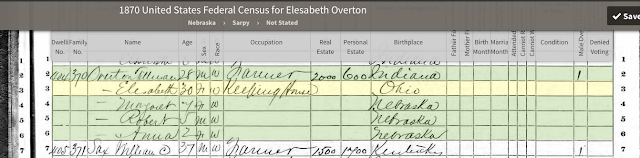 1870 United States Federal Census for Elesabeth Overton
Nebraska > Sarpy > Not Stated
Save
Dwelli No Family No. Name Age Sex Race Occupation Real Estate Personal Estate Birthplace Father Fo Mother F Birth Month Marri Month Attended Cannot R Cannot W Condition Male Over Denied Voting
Indiana
2 370 Overton 28 m W Farmer 2000 600 Indiana 1 2
3 – Elesabeth 30 F W Keeping House Ohio 3
4 – Margaret 7 F W Nebraska 4
5 – Robert 5 m W Nebraska 5
6 – Anna 2 F W Nebraska 6
7 405 371 Sax William 37 m W Farmer 1500 1400 Kentucky 1 7